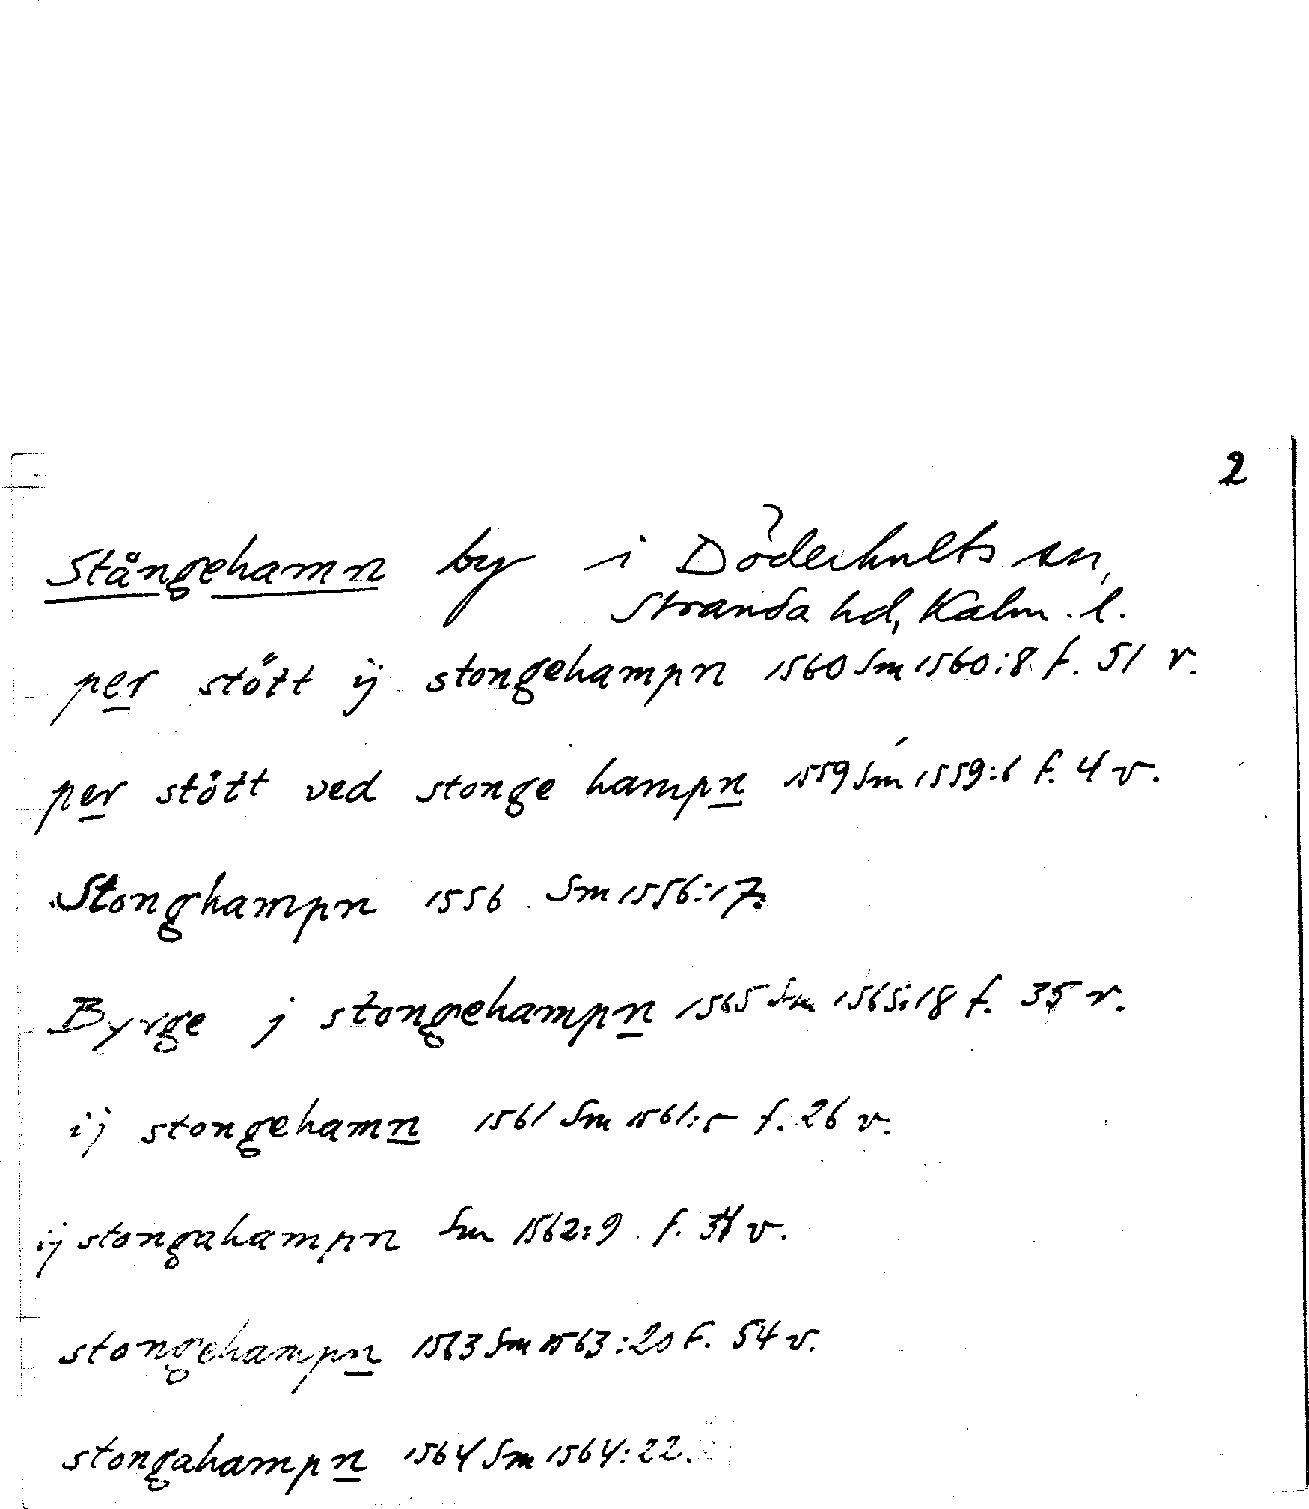 2
Stångehamn by i Döderhults sn,
Stranda hd, Kalm. l.
per stött ij stongehampn 1560 Sm 1560:8 f. 51 r.
per stött ved stonge hampn 1559 Sm 1559:6 f. 4 v.
Stonghampn 1556 Sm 1556:17.
Byrge j stongehampn 1565 Sm 1565:18 f. 35 r.
ij stongehamn 1561 Sm 1561:5 f. 26 v.
ij stongahampn Sm 1562:9 f. v.
stongehampn 1563 Sm 1563:20 f. 54 v.
stongahampn 1564 Sm 1564:22.